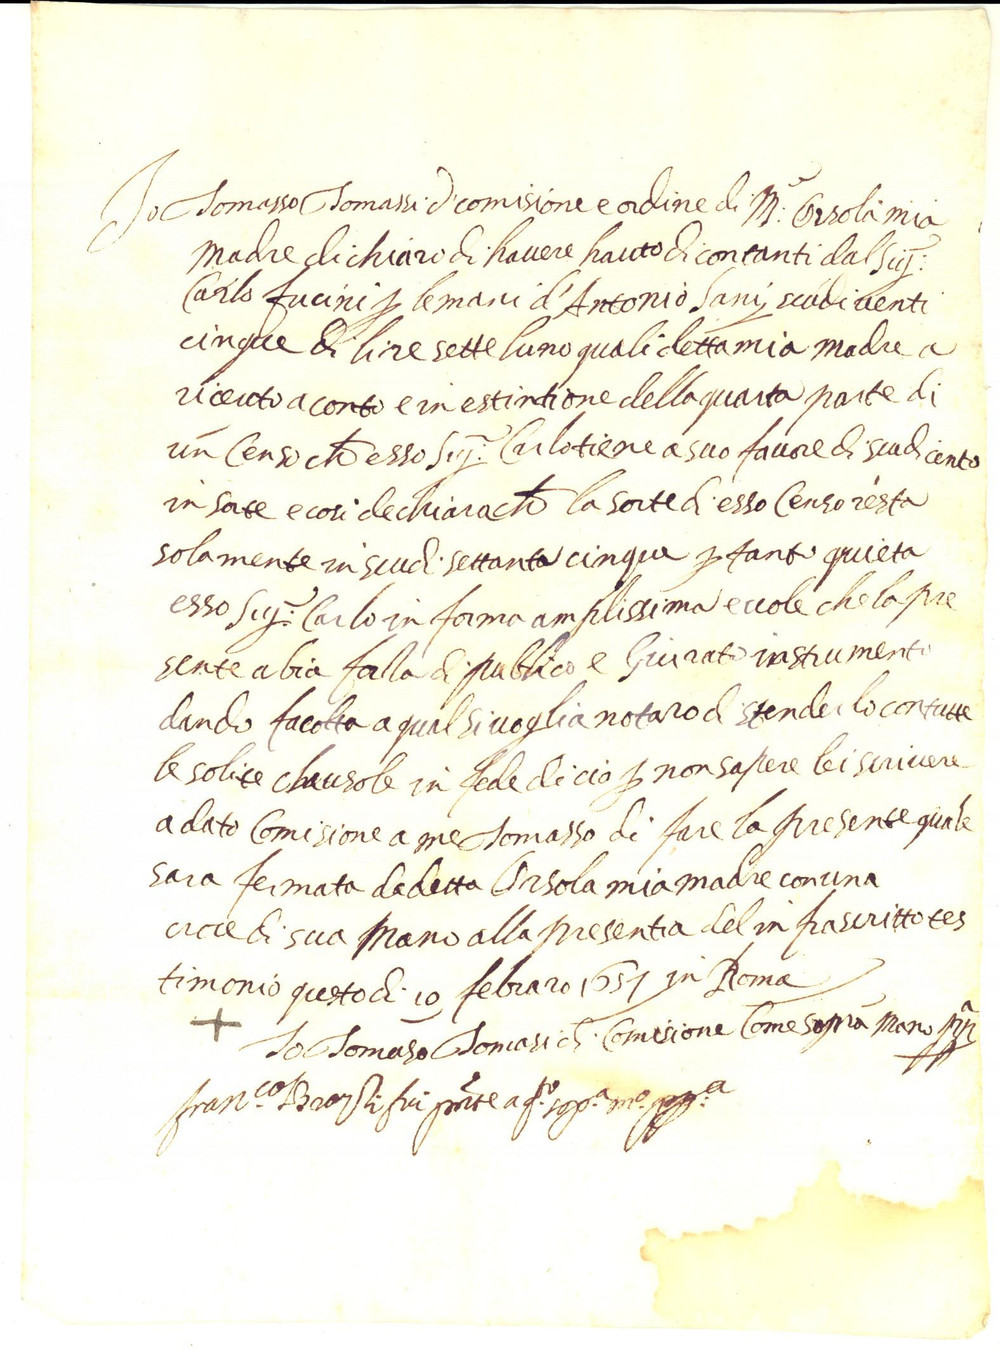 Io Tomasso Tomassi d comisione e ordine di M.ª Orsola mia
madre dichiaro di havere hauto di contanti dal Sig.r
Carlo fucini p le mani d'Antonio Sanij scudi venti
cinque di lire sette luno quali detta mia madre a
riceuto a conto e in estintione della quarta parte di
un Censo ch esso Sig.r Carlo tiene a suo favore di scudi cento
in sorte e cosi dechiara ch la sorte di esso Censo resta
solamente in scudi settanta cinque p tanto quieta
esso Sig.r Carlo in forma amplissima e vole che la pre
sente abia forza di publico e Giurato instrumento
dando facolta a qual si voglia notaro di stenderlo con tutte
le solite clausole in fede di cio p non sapere lei scrivere
a dato Comisione a me Tomasso di fare la presente quale
sara fermata da detta Orsola mia madre con una
croce di sua mano alla presentia del infrascritto tes
timonio questo di 10 febraro 1657 in Roma
+
Io Tomaso Tomasi d Comisione Come sopra mano pp.a
fran.co fui pnte a q.o sop.a m.o pp.a